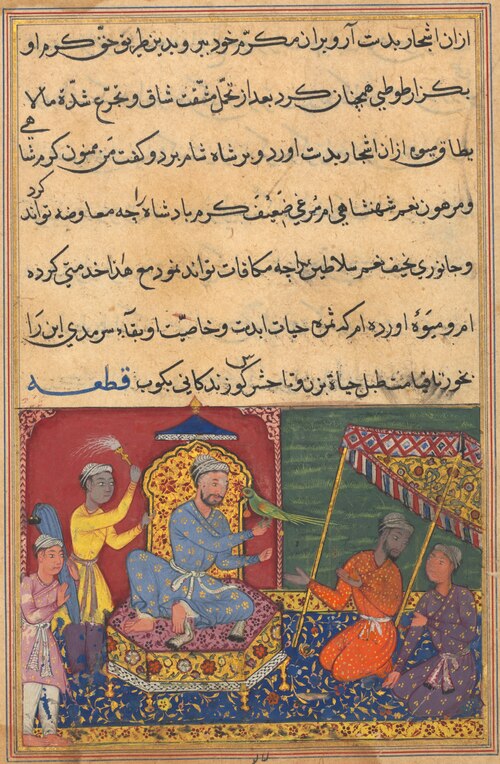 ازان اشجار بدت آرو بران مکرم خود ببر و بدین طریق حق کرم او
بکزار طوطی همچنان کرد بعد از تحمل مشقت شاق و تجرع شده مالا
یطاق میوه ازان اشجار بدت اورد و بر شاه شام برد و گفت من ممنون کرم شاهی
و مرهون نعم شهنشاهی ام مرغی ضعیف کرم بادشاه را چه معاوضه تواند کرد
و جانوری نحیف نعم سلاطین را چه مکافات تواند نمود مع هذا خدمتی کرده
ام و میوهٔ اورده ام که ثمره حیات ابدیت و خاصیت او بقاء سرمدی این را
بخور تا همه مستطیل حیاة بزی و تا حشر کوس زندکانی بکوب قطعه